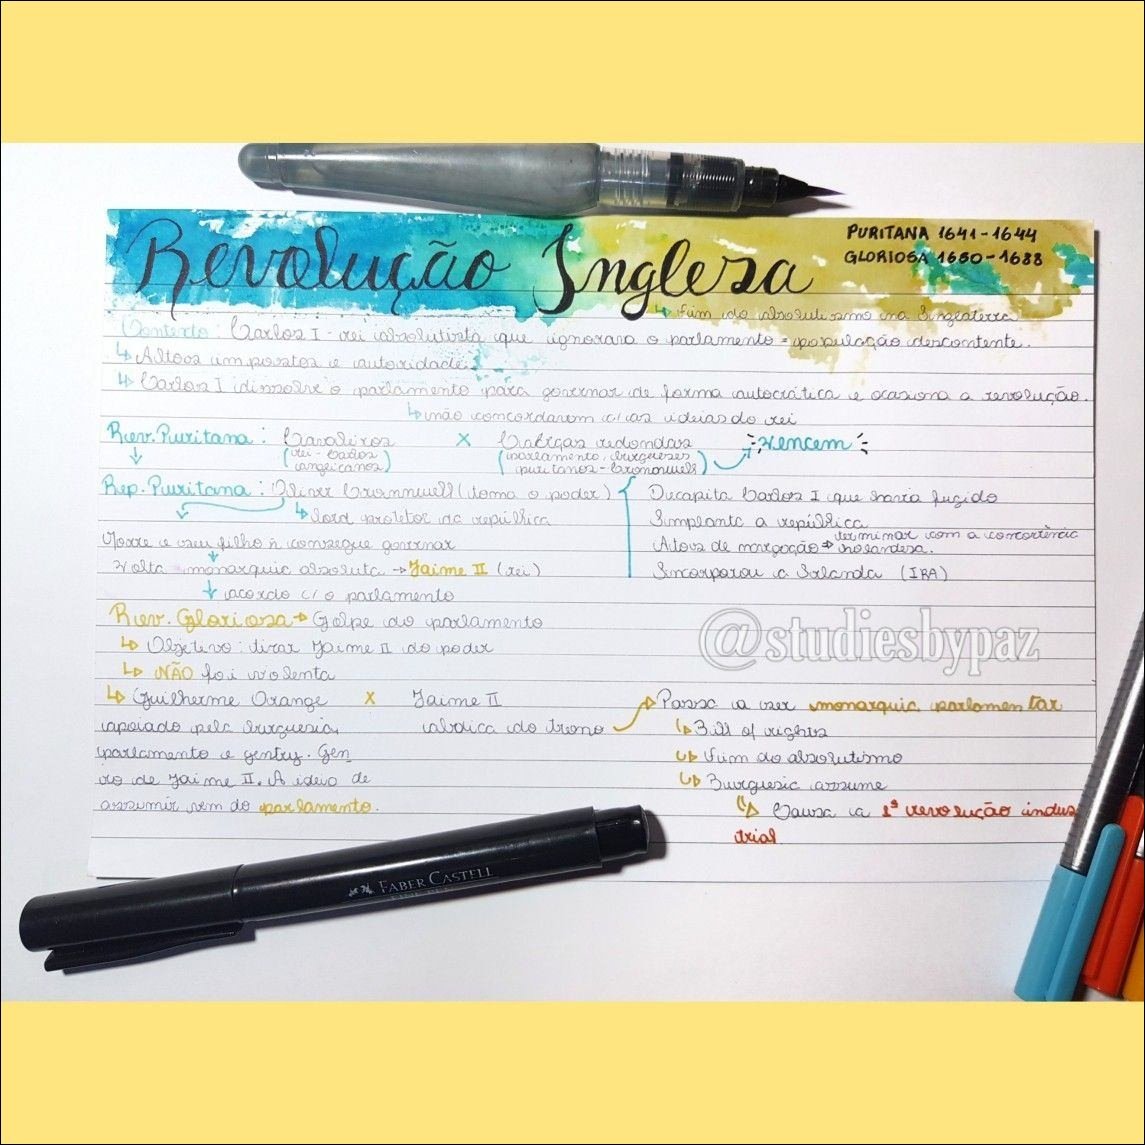 Revolução Inglesa
PURITANA 1641-1644
GLORIOSA 1680-1688
↳ fim do absolutismo na Inglaterra
Contexto: Carlos I - rei absolutista que ignorava o parlamento = população descontente.
↳ Altos impostos e autoridade.
↳ Carlos I dissolve o parlamento para governar de forma autocrática e ocasiona a revolução.
↳ não concordaram c/ as ideias do rei
Rev. Puritana: Cavaleiros X Cabeças redondas → vencem
(rei - Carlos anglicanos) (parlamento, burgueses puritanos - Cromonwell)
Rep. Puritana: Oliver Cromnwell (toma o poder)
↳ lord protetor da república
Decapita Carlos I que havia fugido
Implanta a república
Atos de navegação → terminar com a concorrência holandesa.
Incorporou a Irlanda (IRA)
Morre e seu filho ñ consegue governar
Volta monarquia absoluta → Jaime II (rei)
↳ acordo c/ o parlamento
Rev. Gloriosa → Golpe do parlamento
↳ Objetivo: tirar Jaime II do poder
↳ NÃO foi violenta
↳ Guilherme Orange X Jaime II
apoiado pela burguesia,
parlamento e gentry. Gen
ro de Jaime II. A ideia de
assumir vem do parlamento.
abdica do trono
→ Passa a ser monarquia parlamentar
↳ Bill of rights
↳ Fim do absolutismo
↳ Burguesia assume
↳ Causa a 1ª revolução indus
trial
@studiesbypaz
FABER CASTELL